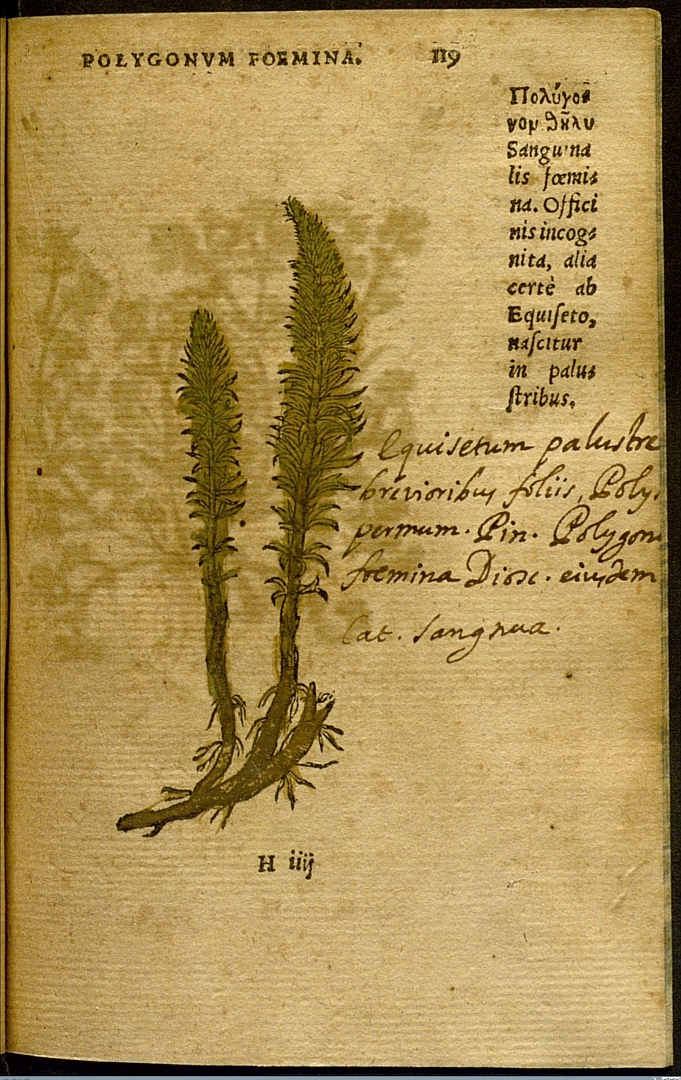 POLYGONVM FOEMINA. 119
Πολύγο⸗
νομ θῆλυ
Sanguina
lis fœmi⸗
na. Offici
nis incog⸗
nita, alia
certè ab
Equiſeto,
naſcitur
in palu⸗
ſtribus.
Equisetum palustre
brevioribus foliis, Poly⸗
permum. Pin. Polygon
foemina Diosc. eiusdem
Cat.
H iiij